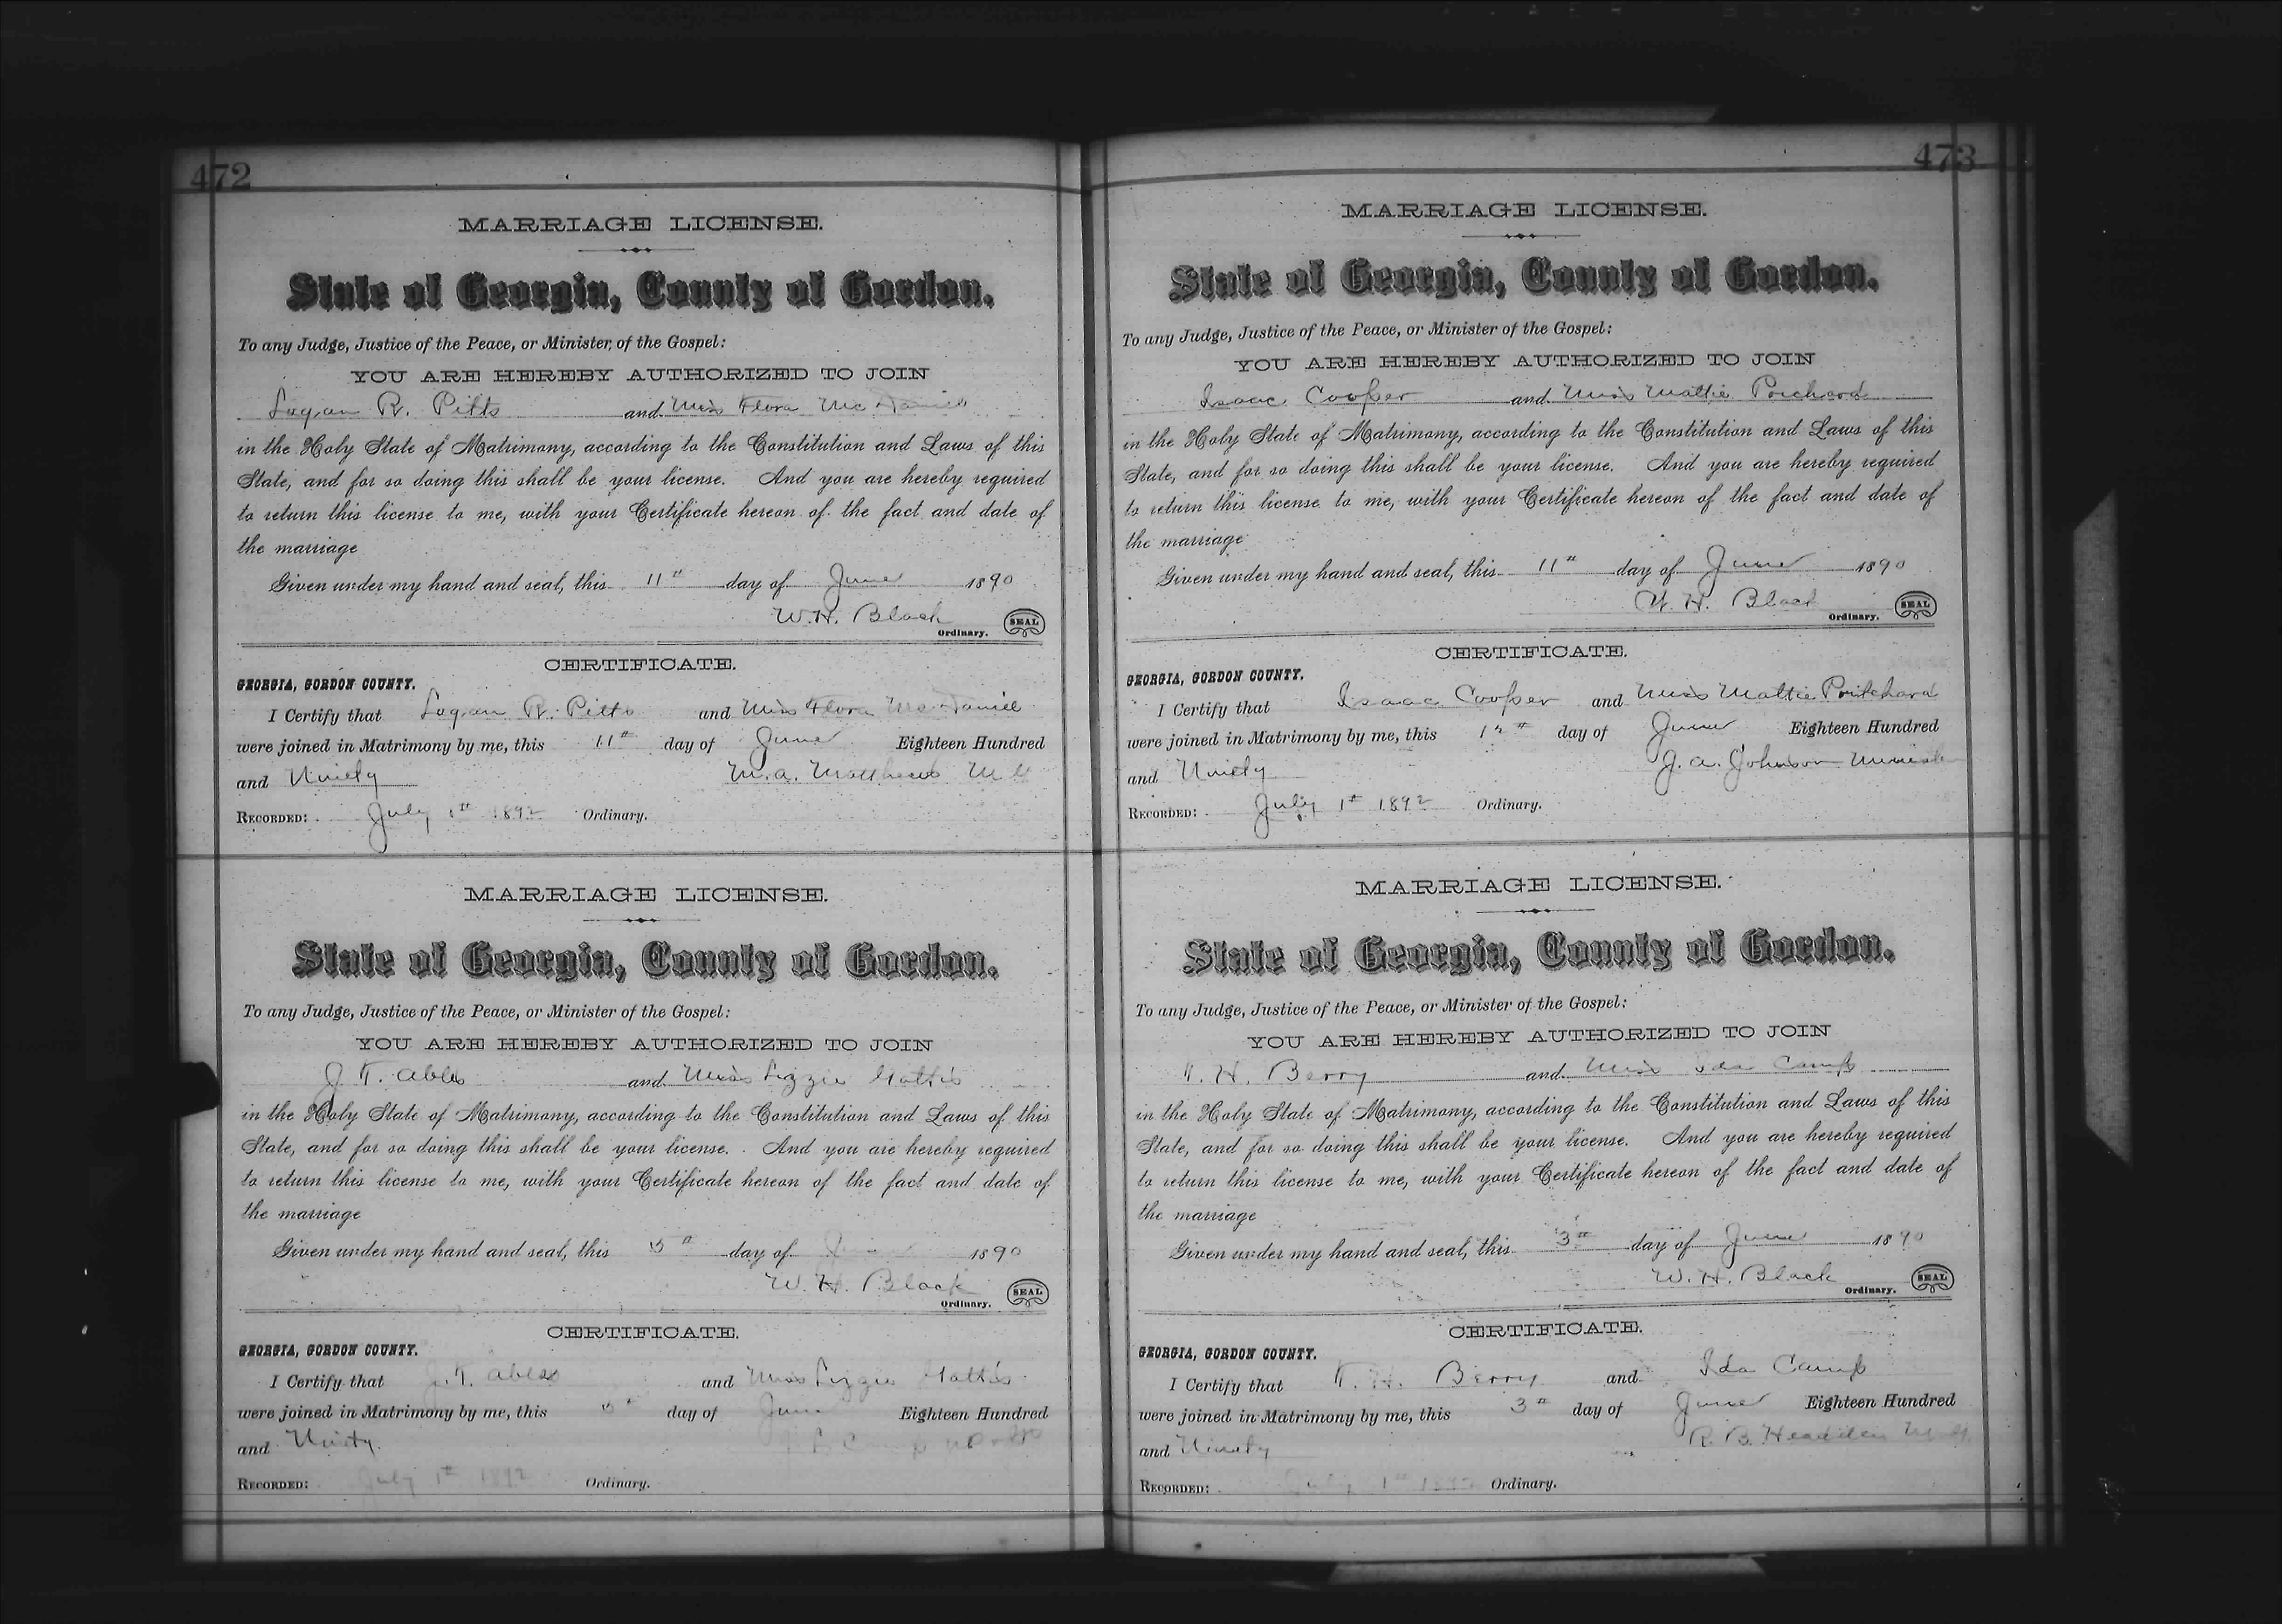 472
MARRIAGE LICENSE.
State of Georgia, County of Gordon.
To any Judge, Justice of the Peace, or Minister of the Gospel:
YOU ARE HEREBY AUTHORIZED TO JOIN
Logan R. Pitts and Miss Flora McDaniel
in the Holy State of Matrimony, according to the Constitution and Laws of this
State, and for so doing this shall be your license. And you are hereby required
to return this license to me, with your Certificate hereon of the fact and date of
the marriage
Given under my hand and seal, this 11th day of June 1890
W. H. Black
Ordinary. SEAL
CERTIFICATE.
GEORGIA, GORDON COUNTY.
I Certify that Logan R. Pitts and Miss Flora McDaniel
were joined in Matrimony by me, this 11th day of June Eighteen Hundred
and Ninety M. A. Matthews M G
RECORDED: July 1st 1892 Ordinary.
MARRIAGE LICENSE.
State of Georgia, County of Gordon.
To any Judge, Justice of the Peace, or Minister of the Gospel:
YOU ARE HEREBY AUTHORIZED TO JOIN
J. T. Ables and Miss Lizzie Gattis
in the Holy State of Matrimony, according to the Constitution and Laws of this
State, and for so doing this shall be your license. And you are hereby required
to return this license to me, with your Certificate hereon of the fact and date of
the marriage
Given under my hand and seal, this day of June 1890
W. H. Black
Ordinary. SEAL
CERTIFICATE.
GEORGIA, GORDON COUNTY.
I Certify that J. T. Ables and Miss Lizzie Gattis
were joined in Matrimony by me, this day of June Eighteen Hundred
and Ninety.
RECORDED: July 1st 1892 Ordinary.
473
MARRIAGE LICENSE.
State of Georgia, County of Gordon.
To any Judge, Justice of the Peace, or Minister of the Gospel:
YOU ARE HEREBY AUTHORIZED TO JOIN
Isaac Cooper and Miss Mattie Prichard
in the Holy State of Matrimony, according to the Constitution and Laws of this
State, and for so doing this shall be your license. And you are hereby required
to return this license to me, with your Certificate hereon of the fact and date of
the marriage
Given under my hand and seal, this 11th day of June 1890
W. H. Black
Ordinary. SEAL
CERTIFICATE.
GEORGIA, GORDON COUNTY.
I Certify that Isaac Cooper and Miss Mattie Pritchard
were joined in Matrimony by me, this 12th day of June Eighteen Hundred
and Ninety J. A. Johnson Minister
RECORDED: July 1st 1892 Ordinary.
MARRIAGE LICENSE.
State of Georgia, County of Gordon.
To any Judge, Justice of the Peace, or Minister of the Gospel:
YOU ARE HEREBY AUTHORIZED TO JOIN
T. H. Berry and Miss Ida Camp
in the Holy State of Matrimony, according to the Constitution and Laws of this
State, and for so doing this shall be your license. And you are hereby required
to return this license to me, with your Certificate hereon of the fact and date of
the marriage
Given under my hand and seal, this 3rd day of June 1890
W. H. Black
Ordinary. SEAL
CERTIFICATE.
GEORGIA, GORDON COUNTY.
I Certify that T. H. Berry and Ida Camp
were joined in Matrimony by me, this 3rd day of June Eighteen Hundred
and Ninety R. B. Headden M G.
RECORDED: July 1st 1892 Ordinary.